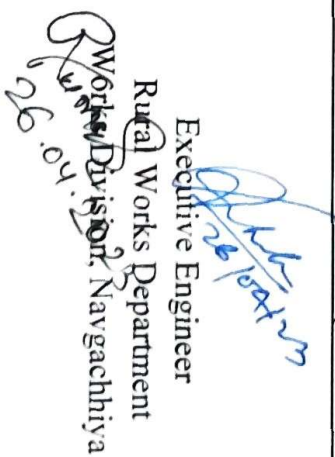 26/04/23
Executive Engineer
Rural Works Department
Works Division, Navgachhiya
26.04.2023